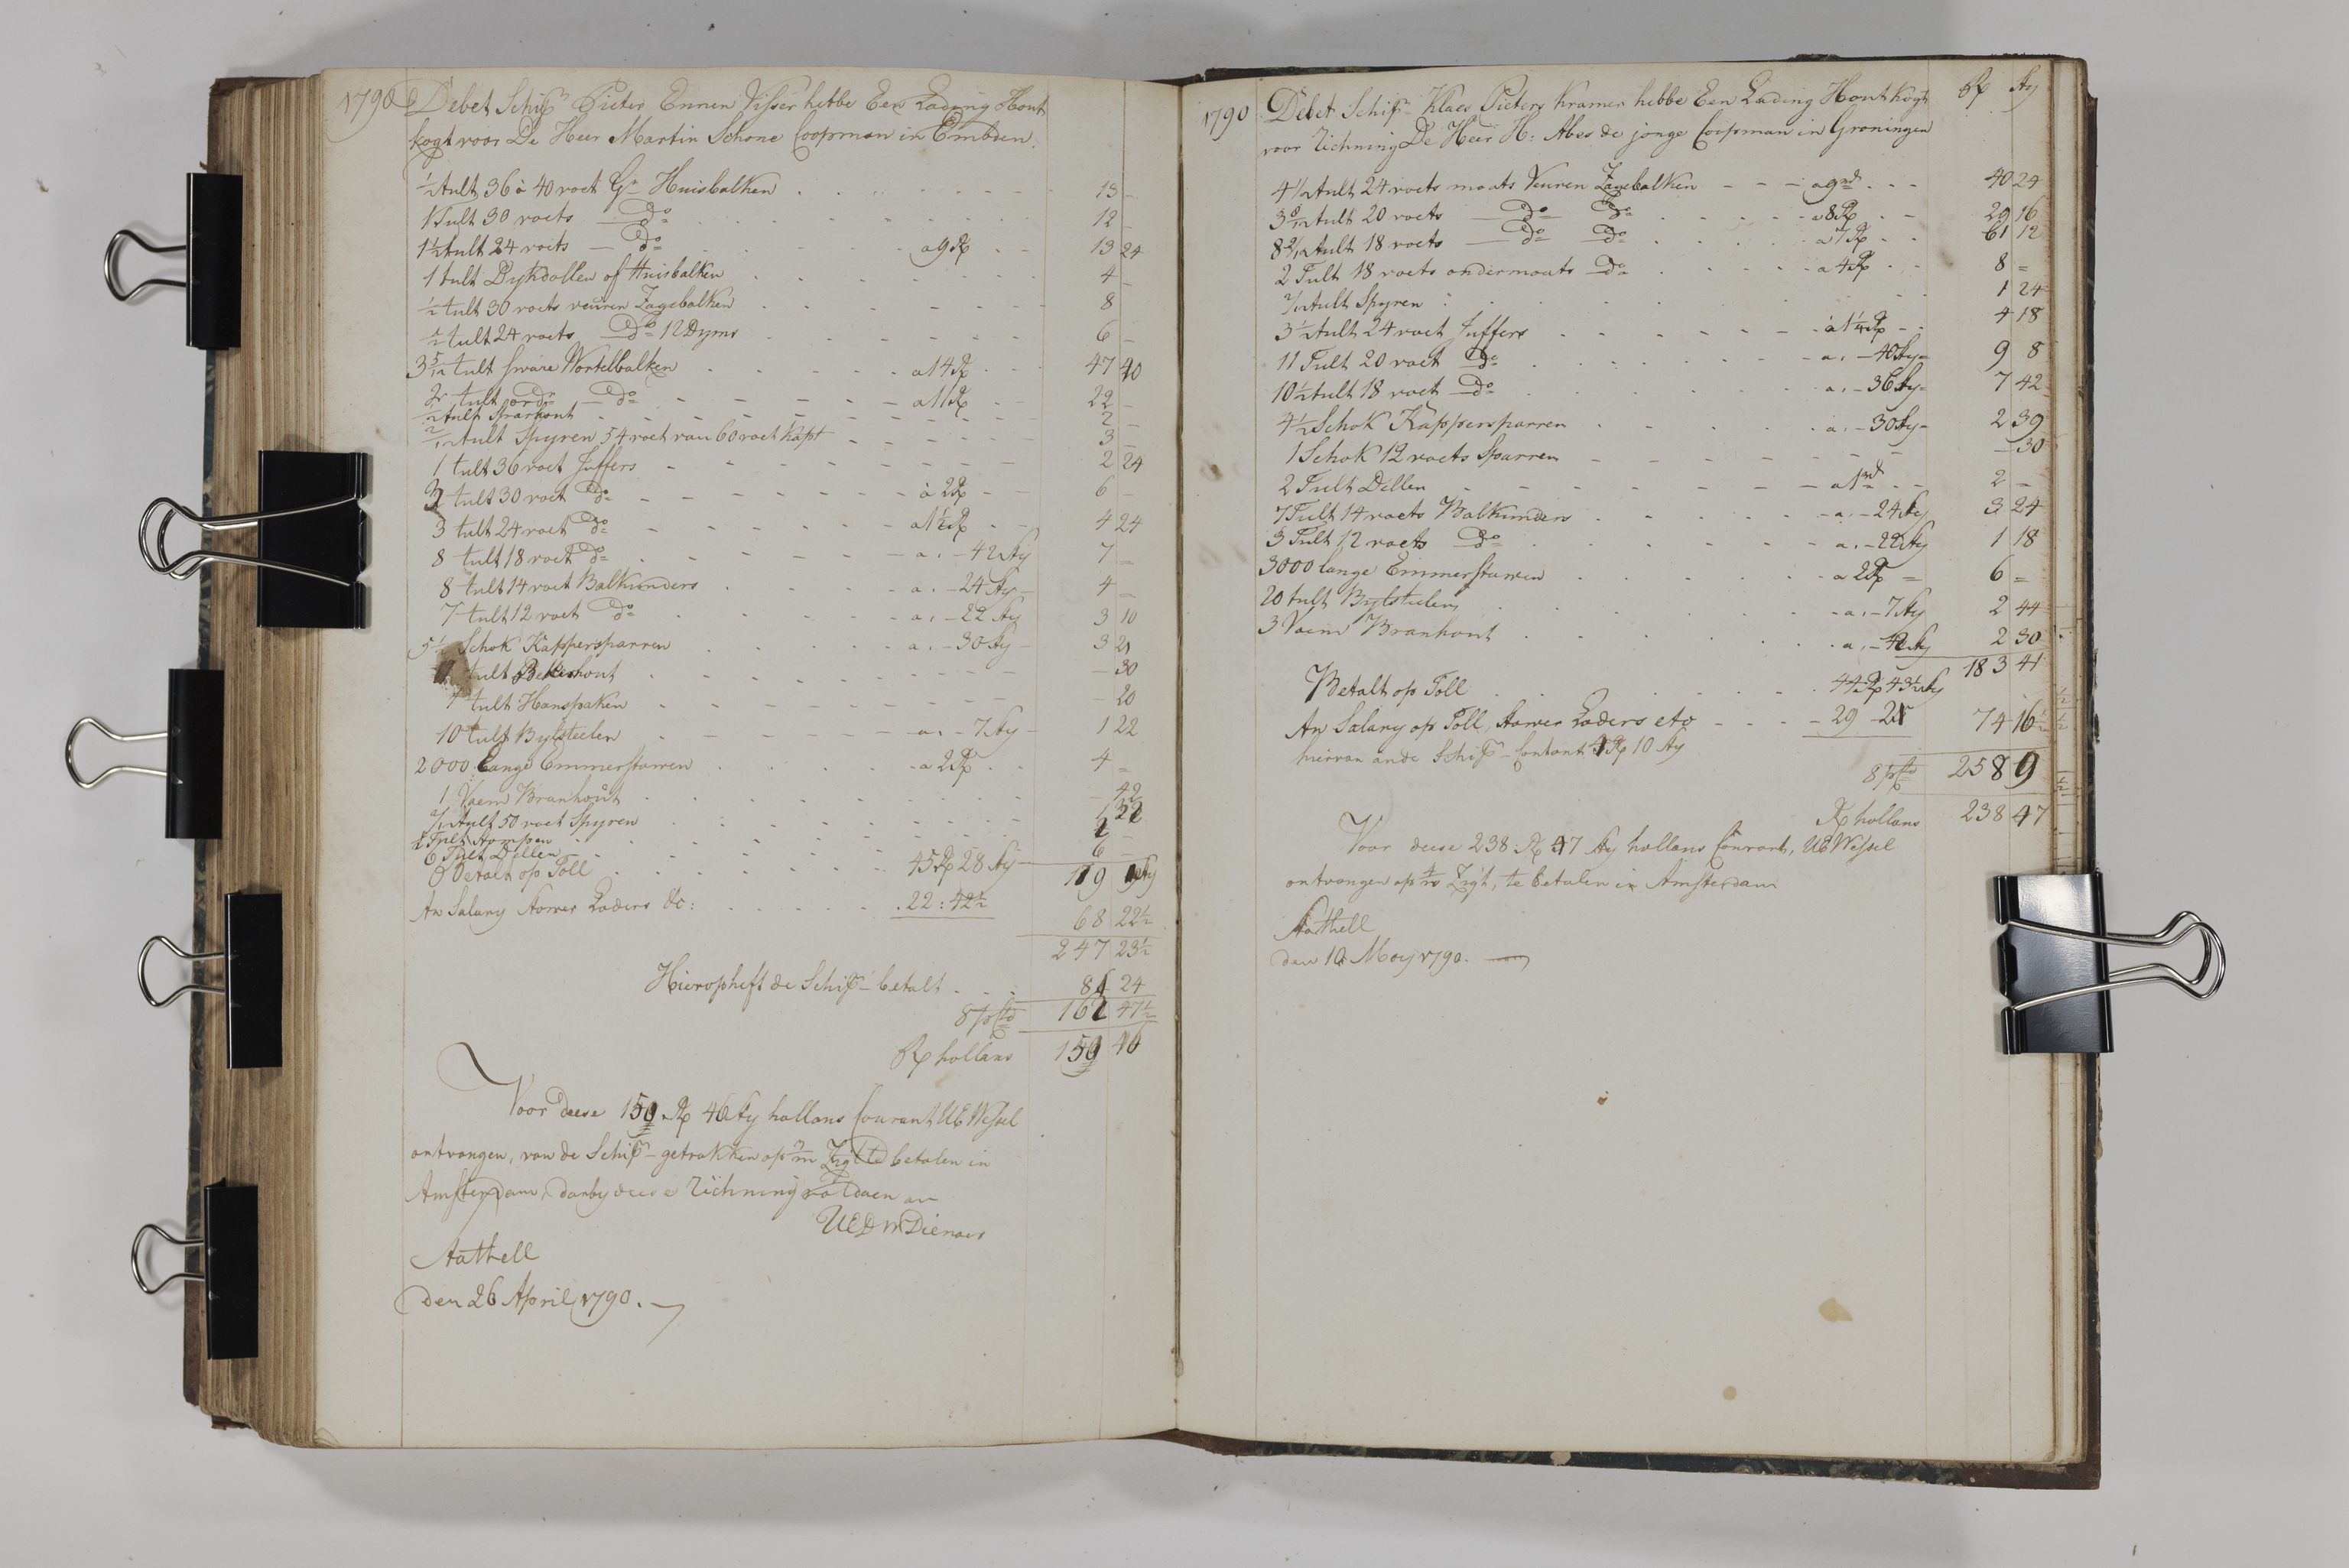 1790 Debet Schipr Pieter Ennen Visser hebbe Een Lading Hout
kogt voor De Heer Martin Schone Coopman in Embden.
1/2 tult 36 à 40 voet Gr Huisbalken 13 -
1 Tult 30 voets Do 12
1 1/2 tult 24 voets Do a 9 R 13 24
1 tult Dykdollen of Huisbalken 4 -
1/2 tult 30 voets veuren Zagebalken 8
1/2 tult 24 voets Do 12 Dyms 6 -
3 5/12 tult sware Wortelbalken a 14 R 47 40
2 tult ordr Do a 11 R 22 -
1/2 tult 2 -
2/12 tult Spyren 54 voet van 60 voet kapt 3 -
1 tult 36 voet Juffers 2 24
3 tult 30 voet Do à 2 R 6 -
3 tult 24 voet Do a 1 1/2 R 4 24
8 tult 18 voet Do a. - 42 sty 7 -
8 tult 14 voet Balkunders a. - 24 sty 4 -
7 tult 12 voet Do a. - 22 sty 3 10
5 1/2 Schok Kappersparren a. - 30 sty 3 21
tult - 30
1 tult Hanspaken - 20
10 tult Bylsteelen a. - 7 sty 1 22
2000 Lange Emmerstawen a 2 R 4 -
1 Vaem Branhout - 42
2/12 tult 50 voet Spyren 1 32
Tult 2 -
6 Tult Dellen 6 -
Betalt op Toll 45 R 28 sty 179 1 sty
An Salary Loders do: 22 : 42 1/2 68 22 1/2
247 23 1/2
Hierop heft de Schipr betalt 84 24
162 47 1/2
8 pCto
R hollans 150 46
Voor deese 150 R 46 sty hollans Courant UE Wessel
ontvangen, van de Schipr getrokken op Zigt te betalen in
Amsterdam, darby deese Richning voldaen an
UED Dienaer
Aathell
den 26 April 1790.
1790 Debet Schipr Klaes Pieters Kramer hebbe Een Lading Hout kogt R sty
voor Richning De Heer H: Abes de jonge Coopman in Groningen
4 1/2 tult 24 voets maats Veuren Zagebalken a 9 rd 40 24
3 8/12 tult 20 voets Do Do a 8 R 29 16
8 9/12 tult 18 voets Do Do a 7 R 61 12
2 Tult 18 voets ondermaats Do a 4 R 8 =
2/12 tult Spyren 1 24
3 1/2 tult 24 voet Juffers à 1 1/4 R 4 18
11 Tult 20 voet Do a. - 40 sty 9 8
10 1/2 tult 18 voet Do a. - 36 sty 7 42
4 1/2 Schok Kappersparren a. - 30 sty 2 39
1 Schok 12 voets Sparren - 30
2 Tult Dellen a 1 rd 2 -
7 Tult 14 voets Balkunders a. - 24 sty 3 24
3 Tult 12 voets Do a. - 22 sty 1 18
3000 lange Emmerstawen a 2 R 6 =
20 tult Bylsteelen a. - 7 sty 2 44
3 Vaem Branhout a. - 42 sty 2 30
183 41
Betalt op Toll 44 R 43 1/2 sty
An Salary op Toll, Loders etc 29 - 21 74 16 1/2
hiervan ande Schipr Contant 4 R 10 sty
8 pCto 258 9
R hollans 238 47
Voor deese 238 R 47 sty hollans Courant, UE Wessel
ontvangen op Zigt, te betalen in Amsterdam
Aathell
den 10 Mey 1790.